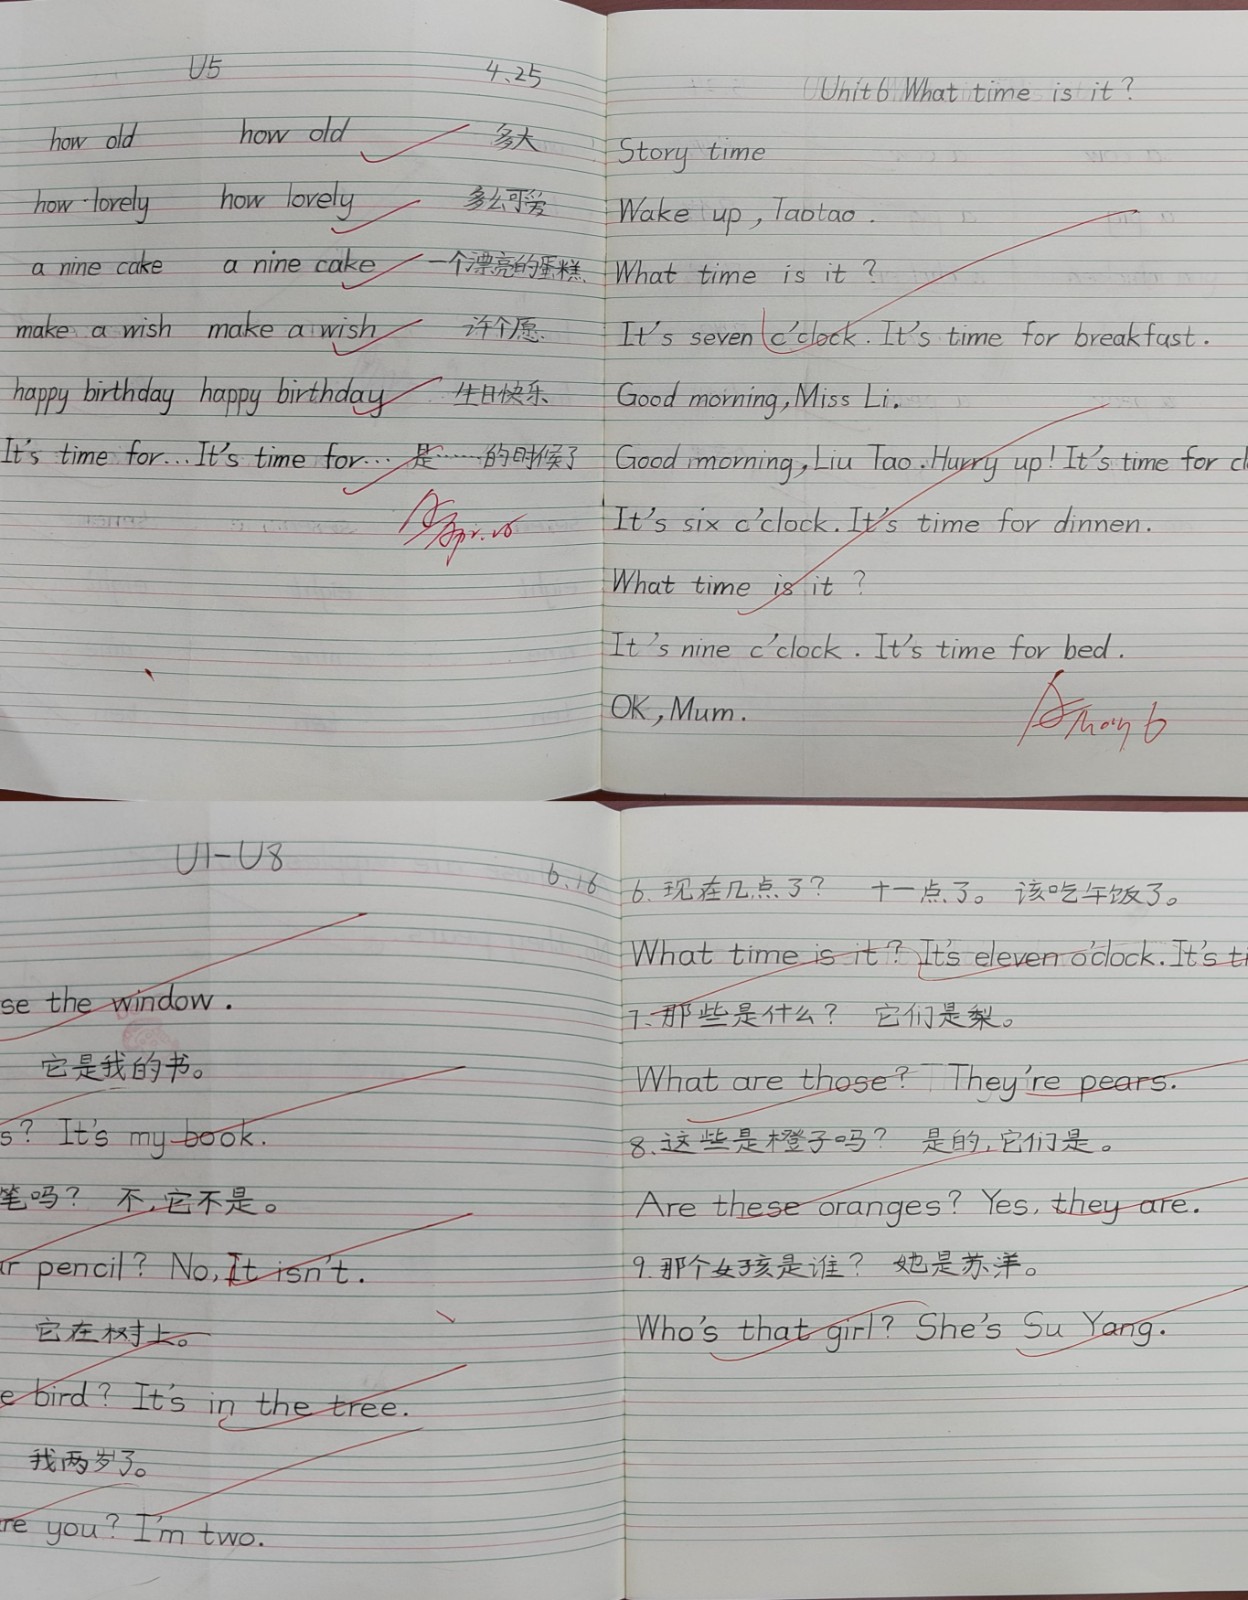 U5 4.25
how old how old 多大
how lovely how lovely 多么可爱
a nine cake a nine cake 一个漂亮的蛋糕
make a wish make a wish 许个愿
happy birthday happy birthday 生日快乐
It's time for... It's time for... 是……的时候了
Unit 6 What time is it?
Story time
Wake up, Taotao.
What time is it?
It's seven c'clock. It's time for breakfast.
Good morning, Miss Li.
Good morning, Liu Tao. Hurry up! It's time for cl
It's six c'clock. It's time for dinnen.
What time is it?
It's nine c'clock. It's time for bed.
OK, Mum.
A May 6
U1-U8 6.16
se the window.
它是我的书。
s? It's my book.
笔吗? 不,它不是。
ur pencil? No, It isn't.
它在树上。
e bird? It's in the tree.
我两岁了。
re you? I'm two.
6. 现在几点了? 十一点了。 该吃午饭了。
What time is it? It's eleven o'clock. It's ti
7. 那些是什么? 它们是梨。
What are those? They're pears.
8. 这些是橙子吗? 是的,它们是。
Are these oranges? Yes, they are.
9. 那个女孩是谁? 她是苏洋。
Who's that girl? She's Su Yang.